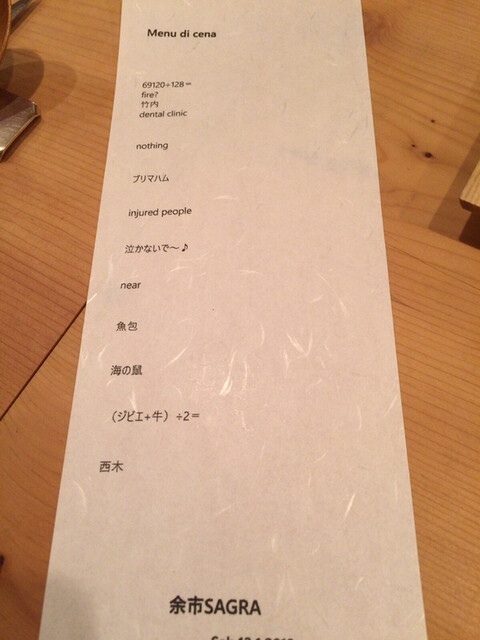 Menu di cena
69120÷128＝
fire?
竹内
dental clinic
nothing
プリマハム
injured people
泣かないで～♪
near
魚包
海の鼠
（ジビエ+牛）÷2＝
西木
余市SAGRA